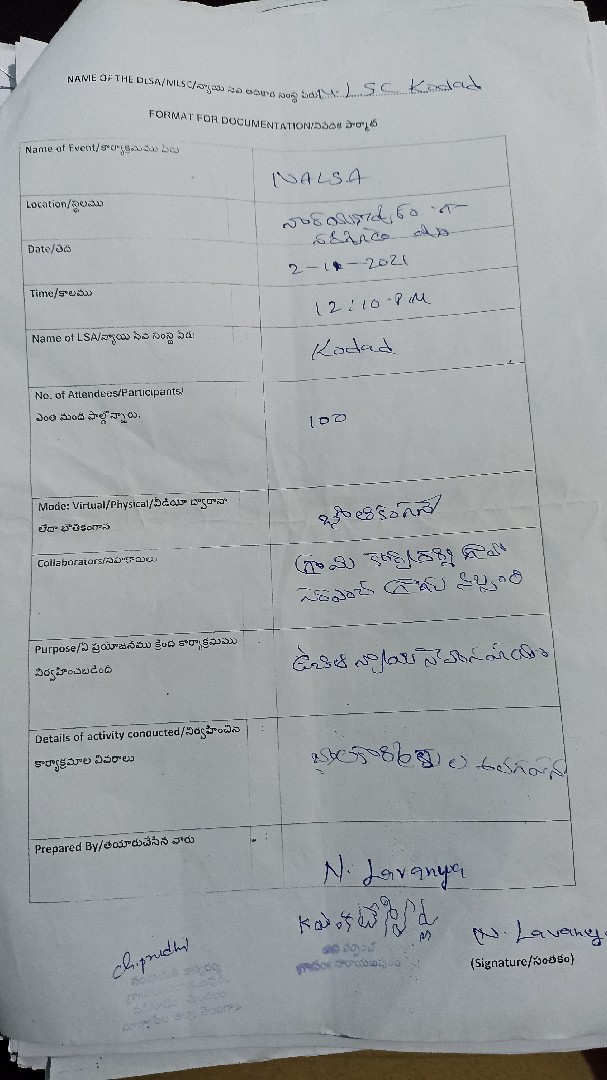 NAME OF THE DLSA/MLSC/న్యాయ సేవ అధికార సంస్థ పేరు M. LSC Kodad
FORMAT FOR DOCUMENTATION/నివేదిక ఫార్మాట్
Name of Event/కార్యక్రమము పేరు
NALSA
Location/స్థలము
Date/తేది
2-11-2021
Time/కాలము
12:10 PM
Name of LSA/న్యాయ సేవ సంస్థ పేరు
Kodad
No. of Attendees/Participants/
ఎంత మంది పాల్గొన్నారు.
100
Mode: Virtual/Physical/వీడియో ద్వారానా
లేదా భౌతికంగానా
భౌతికంగానే
Collaborators/సహకారులు
గ్రామ కార్యదర్శి గ్రామ
సర్పంచ్ గ్రామ సిబ్బంది
Purpose/ఏ ప్రయోజనము క్రింద కార్యక్రమము
నిర్వహించబడింది
ఉచిత న్యాయ సేవా సహాయం
Details of activity conducted/నిర్వహించిన
కార్యక్రమాల వివరాలు
Prepared By/తయారుచేసిన వారు
N. Lavanya
N. Lavanya
(Signature/సంతకం)